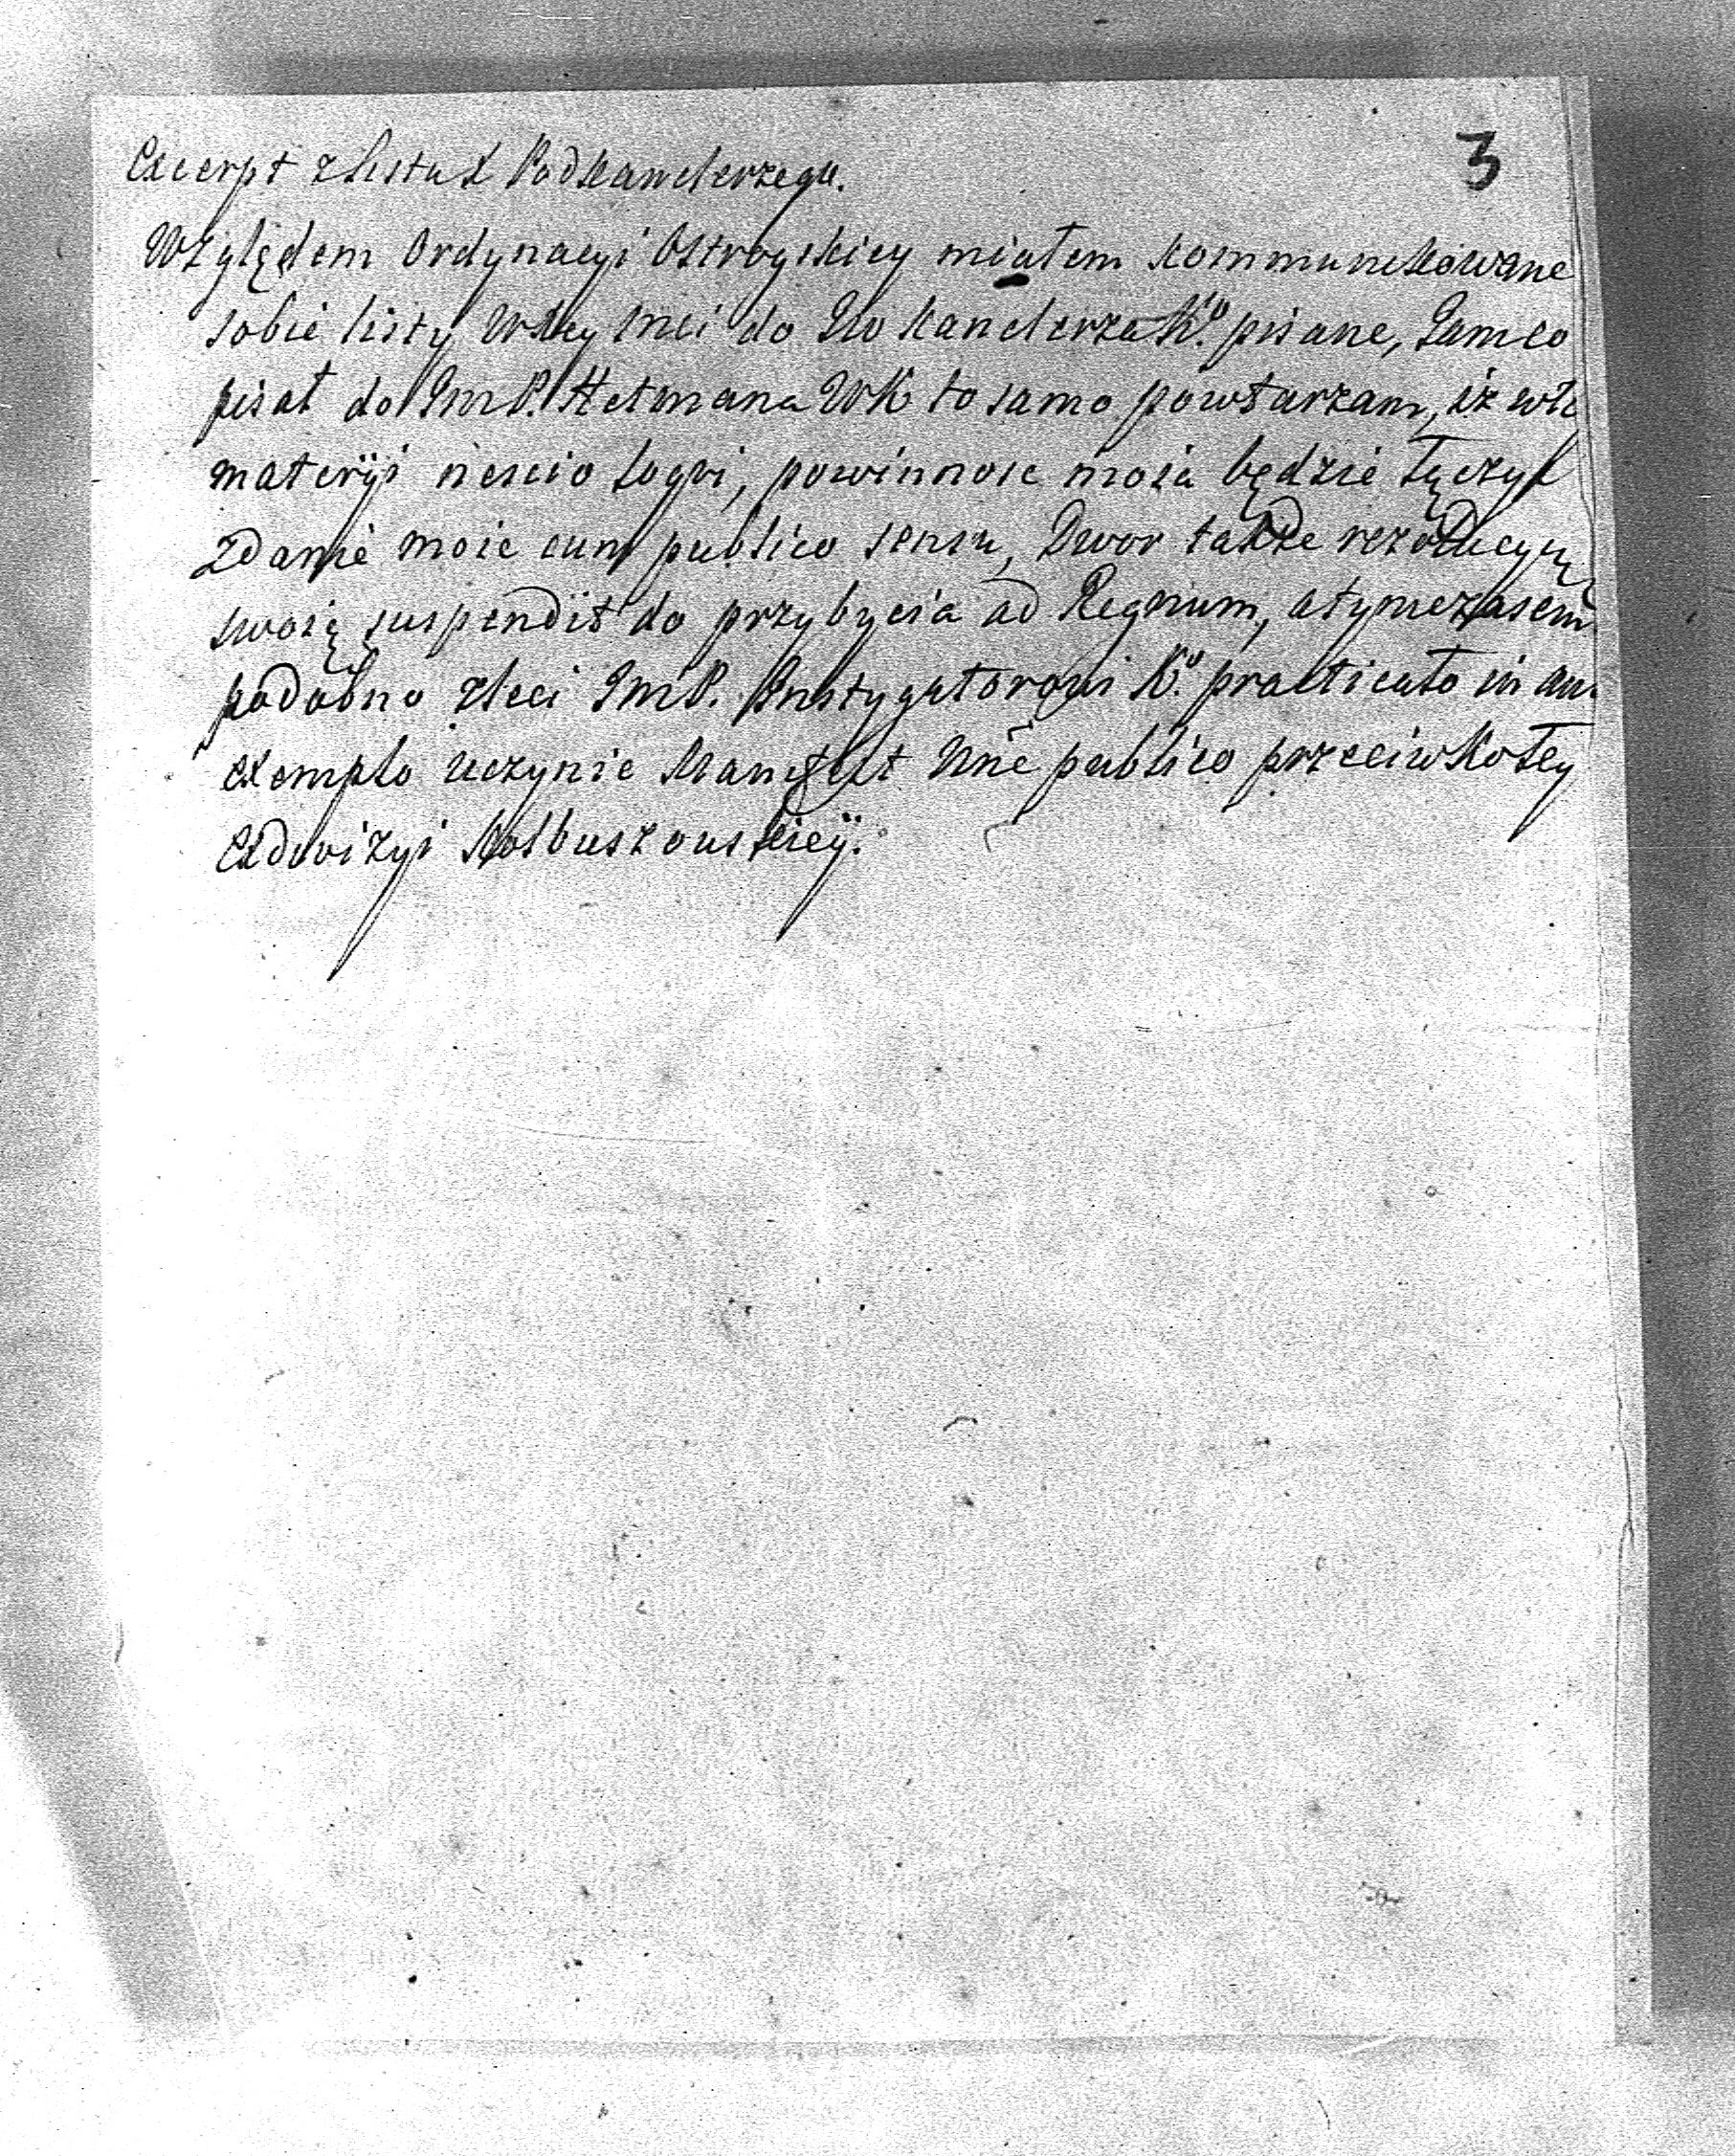 3
Excerpt z listu X Podkanclerzego.
Względem Ordynacyi Ostrogskiey miałem kommunikowane
sobie listy WKey Mci do Jmo kanclerza K.º pisane, Jam co
pisał do JmP. Hetmana WK to samo powtarzam, iż w te
materyi nescio loqvi, powinnosc moia będzie łęczyc
zdanie moie cum publico sensu, Dwor także rezolucyą
swoię suspendit do przybycia ad Regnum, a tymczasem
podobno zleci JmP. Instygatorowi K.º practicato in an
exemplo uczynic Manifest Nne publico przeciwko tey
Exdevizyi Kolbuszouskieÿ.